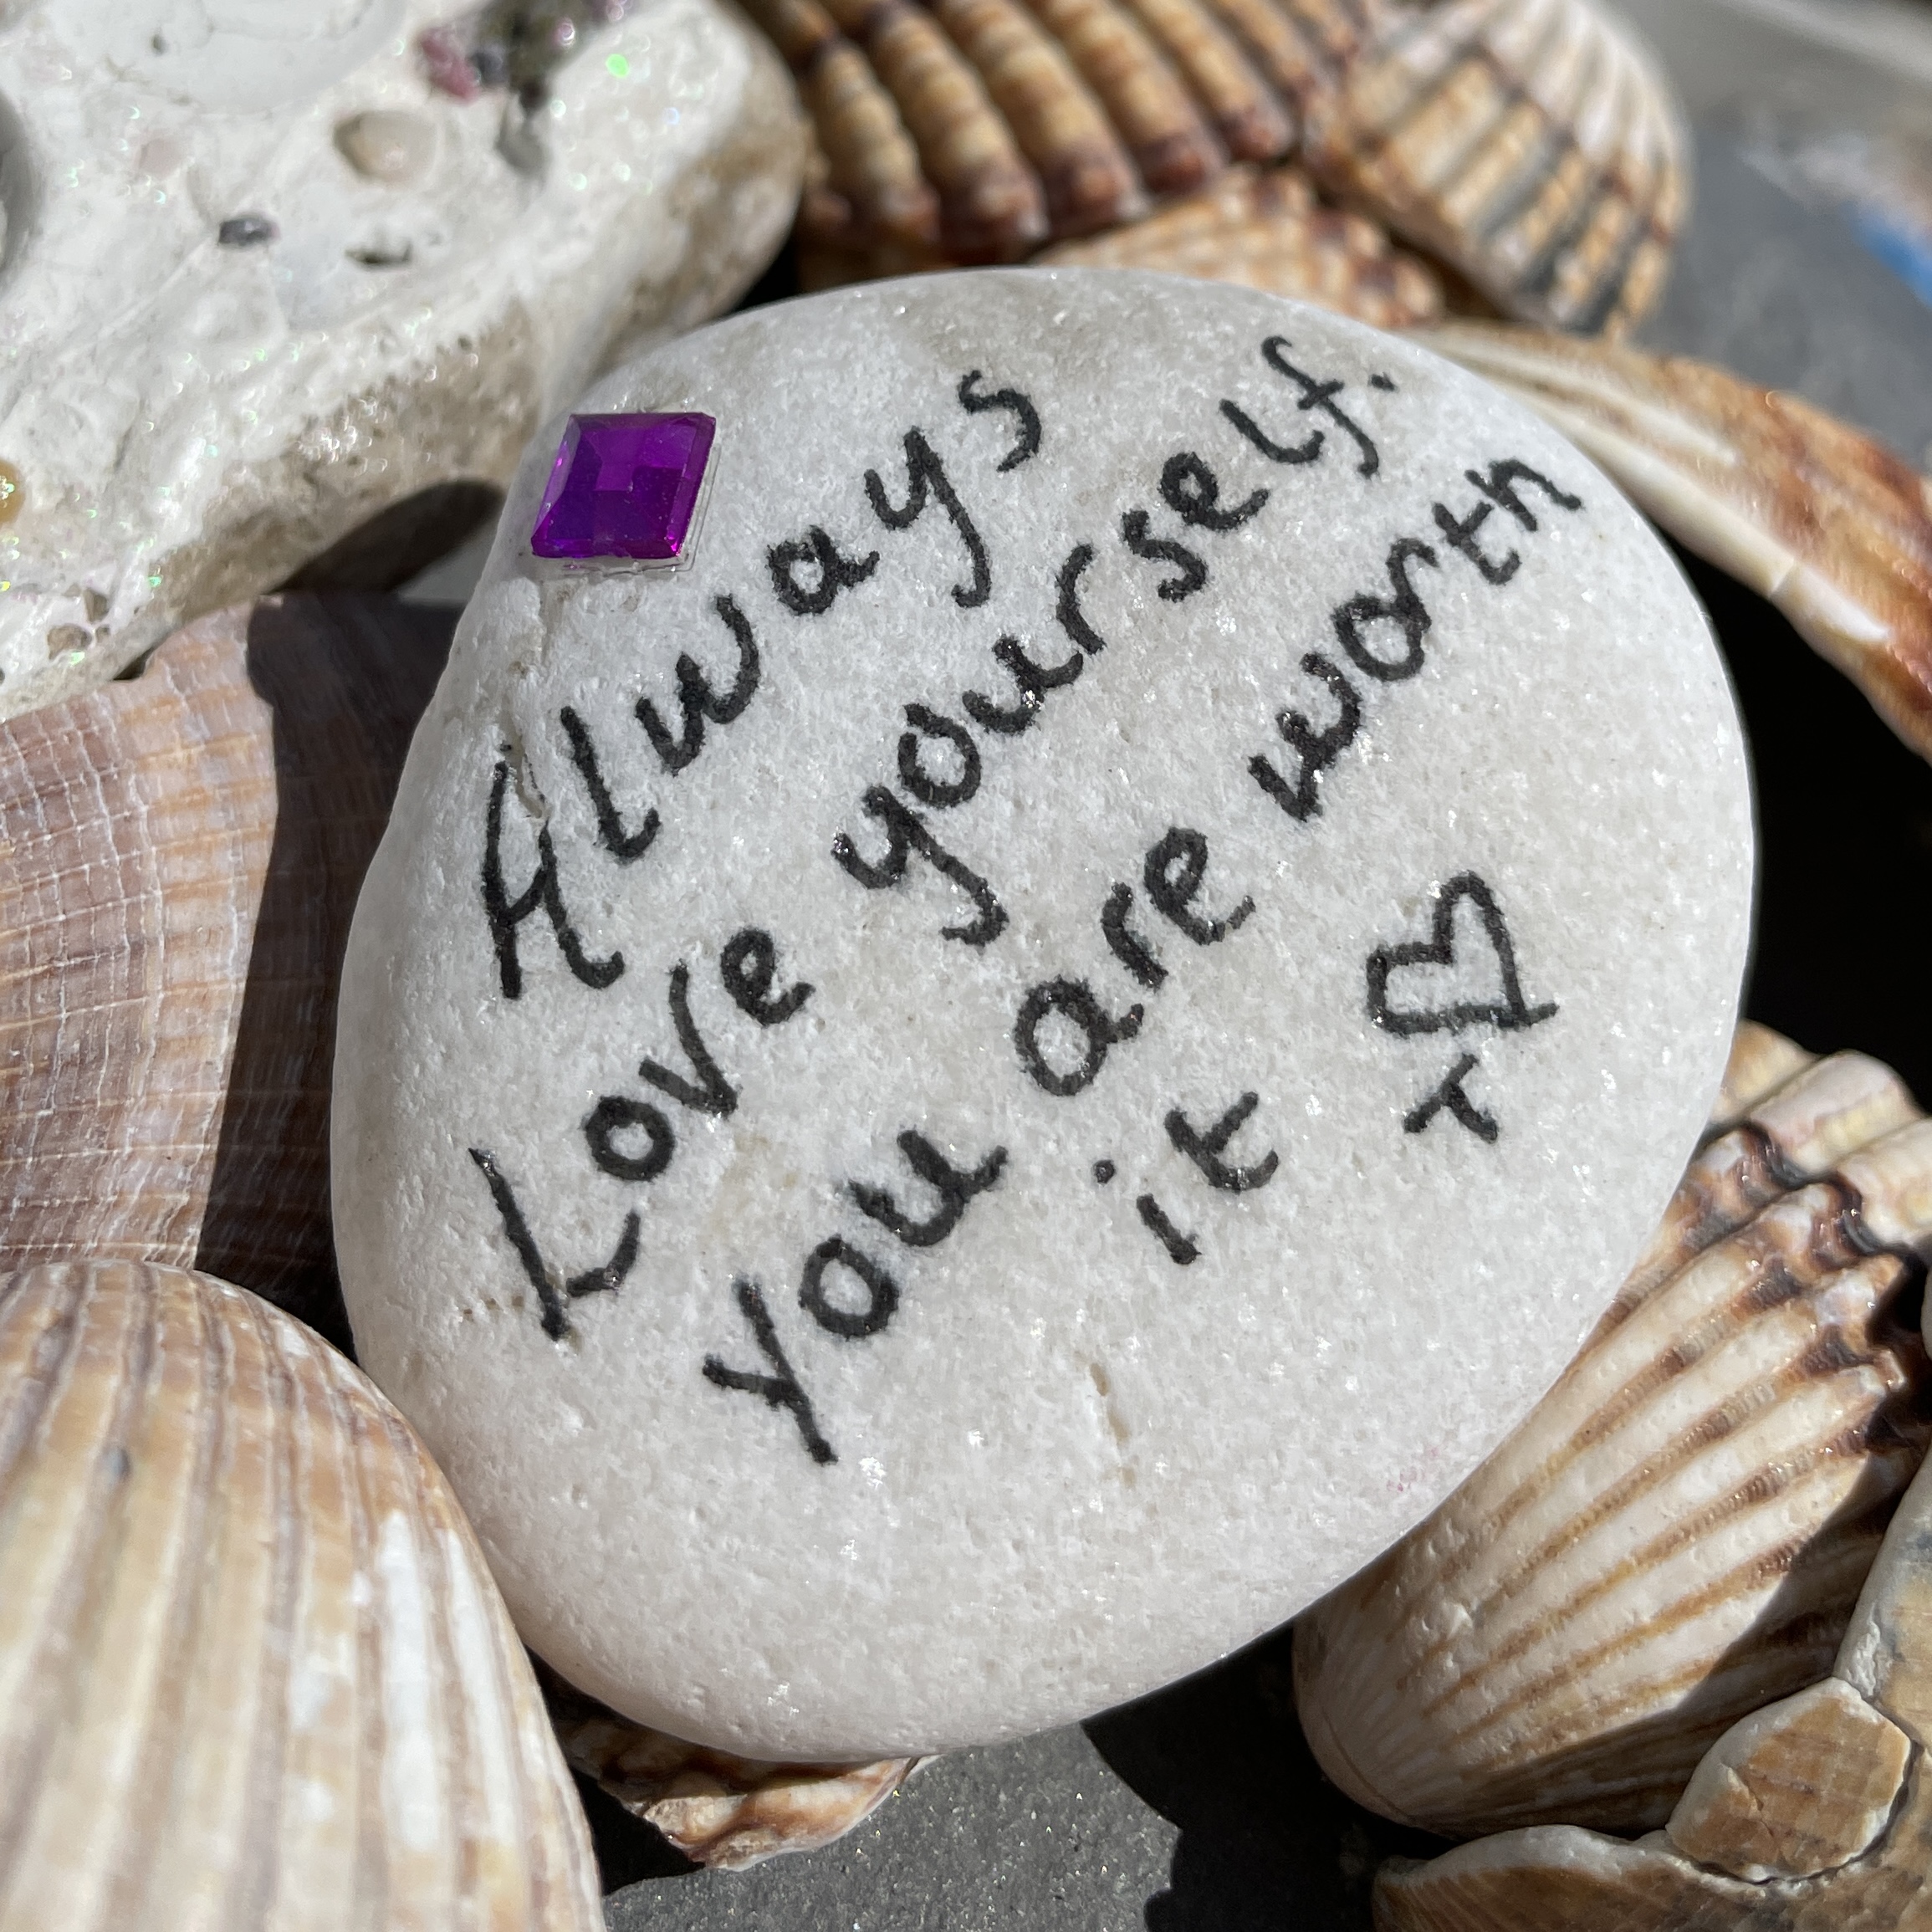 Always
Love yourself.
You are worth
it ♡
T